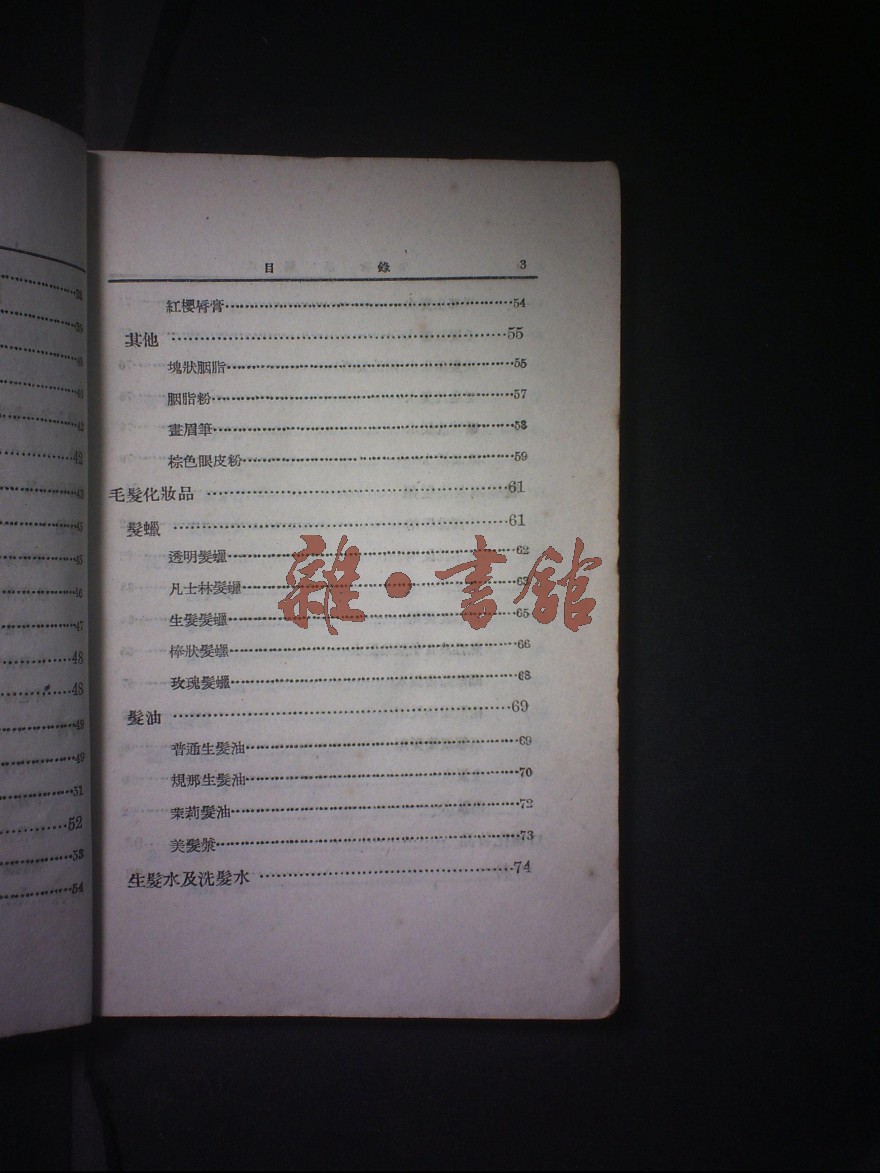 38
39
40
41
42
42
43
45
45
46
47
48
48
49
49
51
52
53
54
目錄 3
紅櫻唇膏……54
其他……55
塊狀胭脂……55
胭脂粉……57
畫眉筆……58
棕色眼皮粉……59
毛髮化妝品……61
髮蠟……61
透明髮蠟……62
凡士林髮蠟……63
生髮髮蠟……65
棒狀髮蠟……66
玫瑰髮蠟……68
髮油……69
普通生髮油……69
規那生髮油……70
茉莉髮油……72
美髮漿……73
生髮水及洗髮水……74
雜·書館